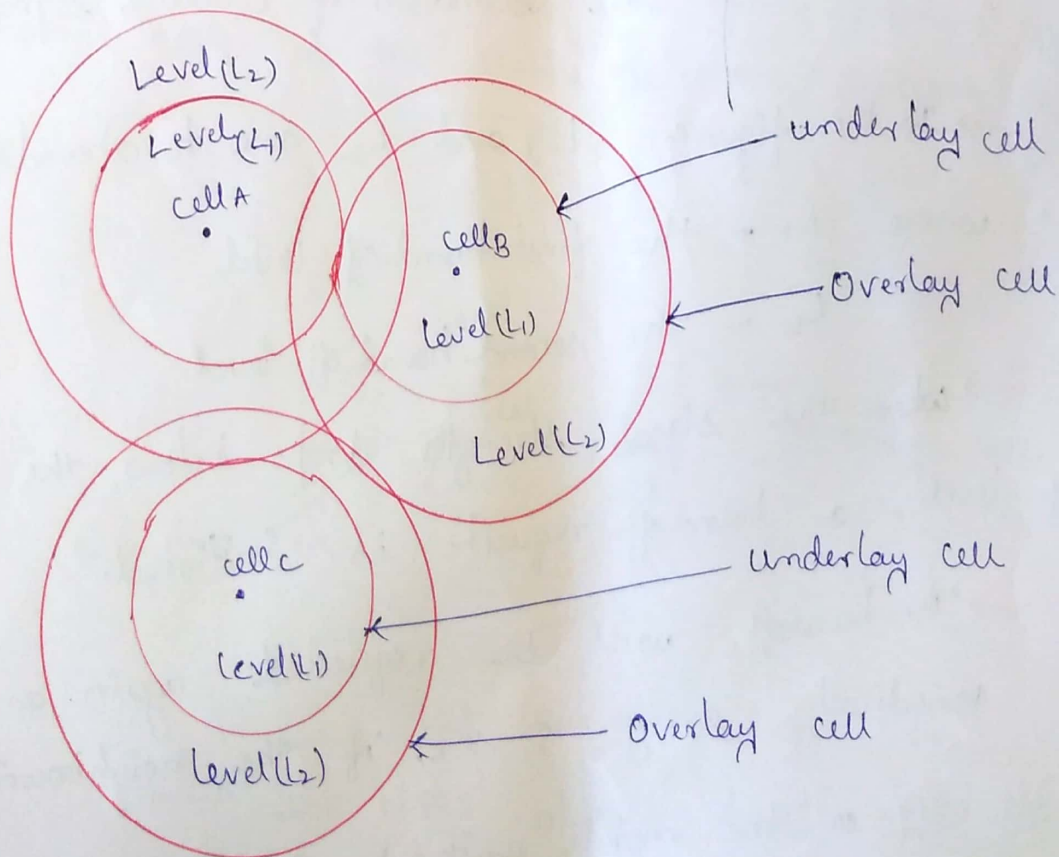 Level(L2)
Level(L1)
cell A
cell B
Level(L1)
Level(L2)
underlay cell
Overlay cell
cell C
Level(L1)
Level(L2)
underlay cell
Overlay cell